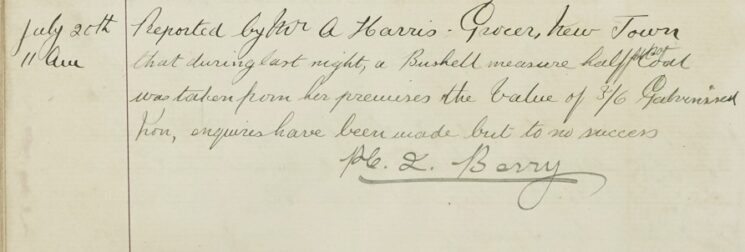 July 20th
11 Am
Reported by Mr A Harris - Grocer, New Town
that during last night, a Bushell measure half Coal
was taken from her premises the Value of 3/6 Galvinised
Iron, enquires have been made but to no success
P.C. L. Berry